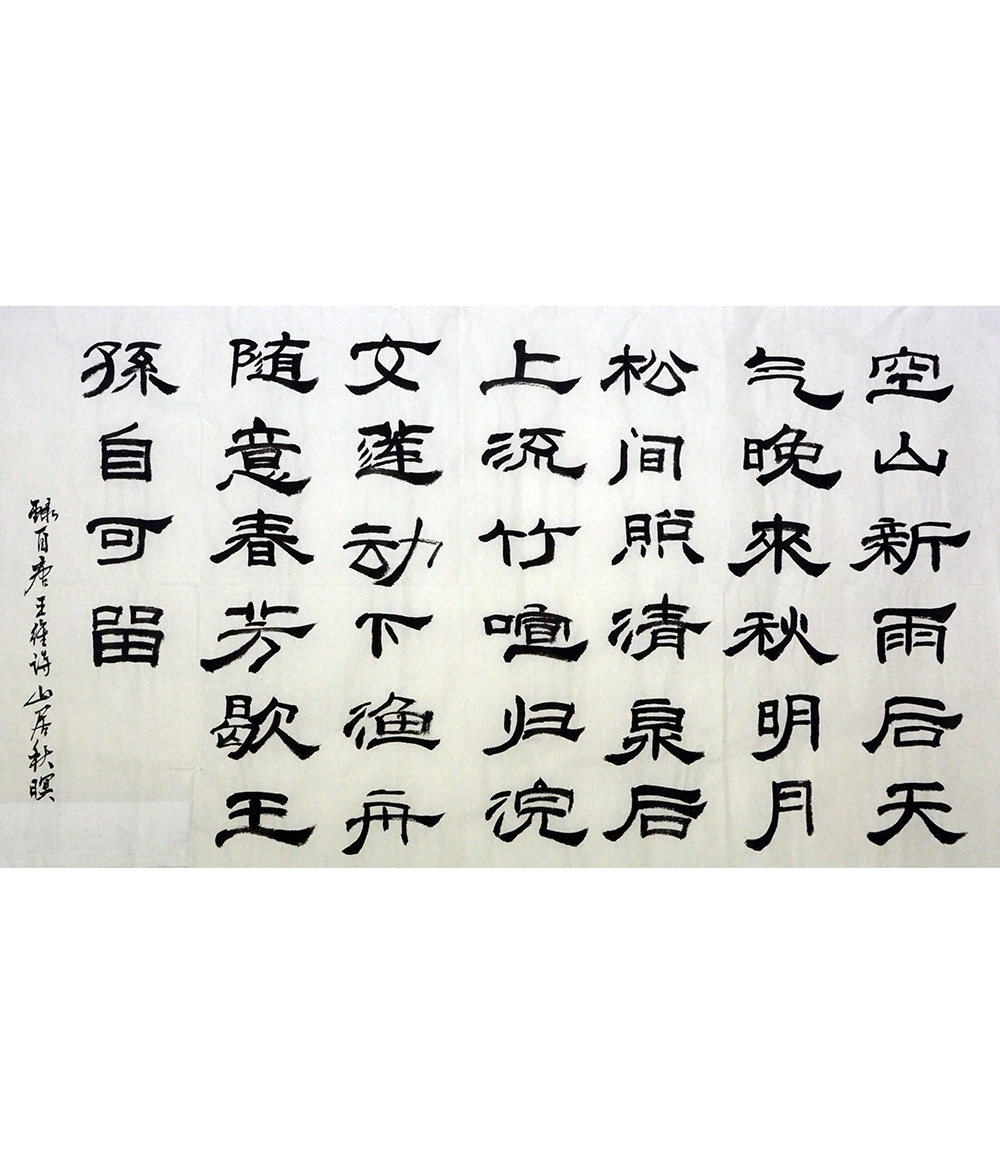 空山新雨后天
气晚來秋明月
松间照清泉后
上流竹喧归浣
女莲动下渔舟
随意春芳歇王
孫自可留
録自唐王维诗山居秋暝